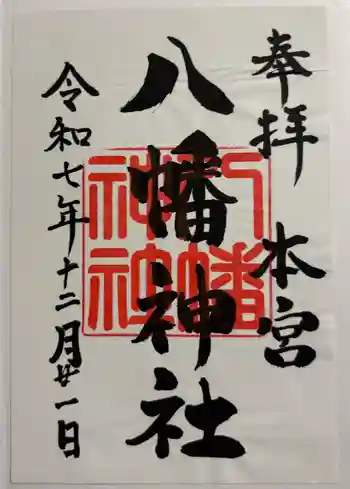 奉拝 本宮
八幡神社
令和七年十二月廿一日
八幡
神社